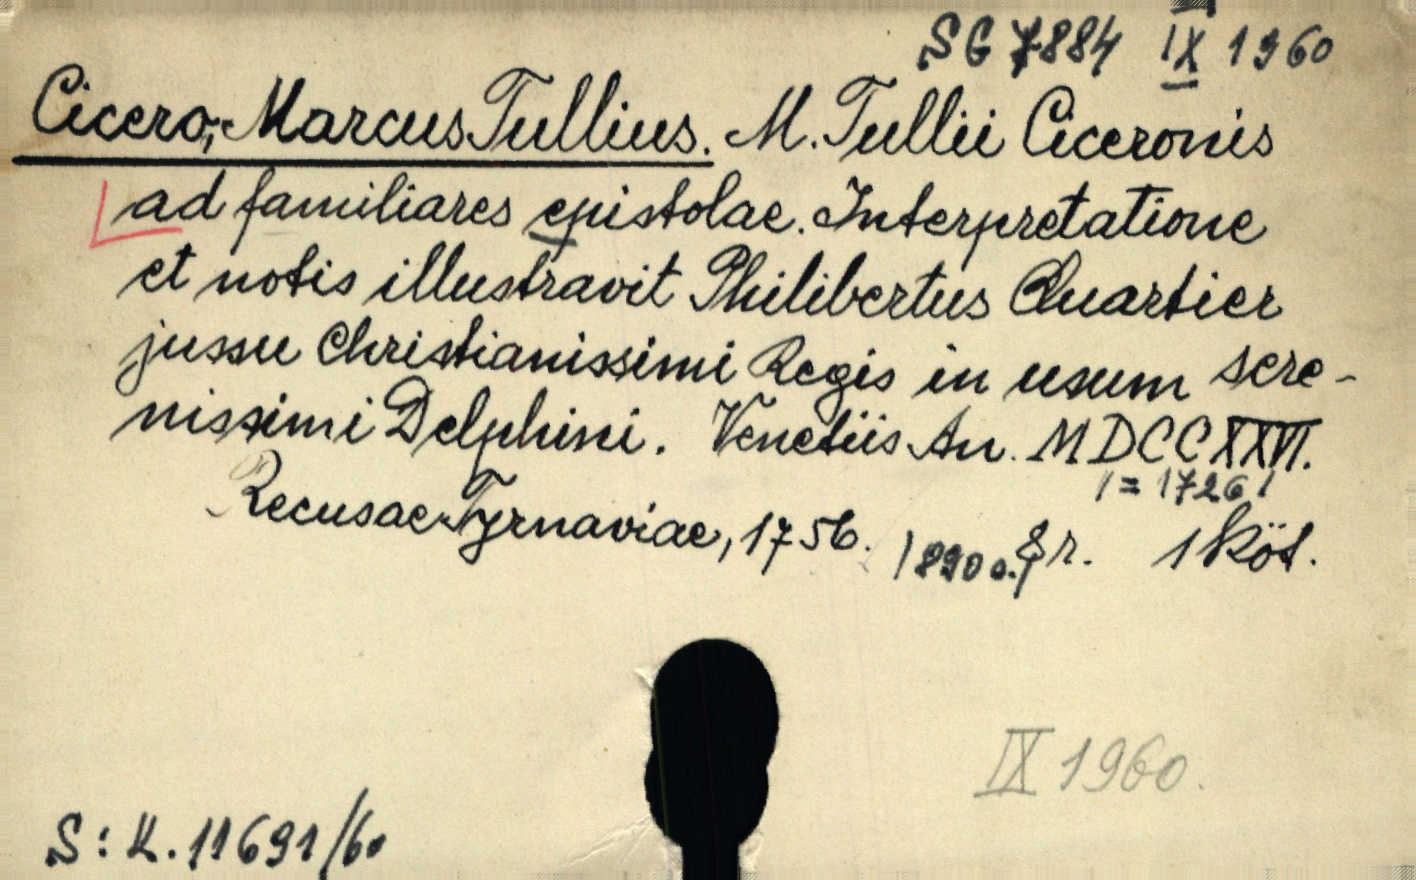 SG 7884 IX 1960
Cicero, Marcus Tullius. M. Tullii Ciceronis
ad familiares epistolae. Interpretatione
et notis illustravit Philibertus Quartier
jussu Christianissimi Regis in usum sere-
nissimi Delphini. Venetiis An. MDCCXXVI.
/=1726/
Recusae Tyrnaviae, 1756. /890 o./ 8r. 1 köt.
IX 1960.
S: K. 11691/60